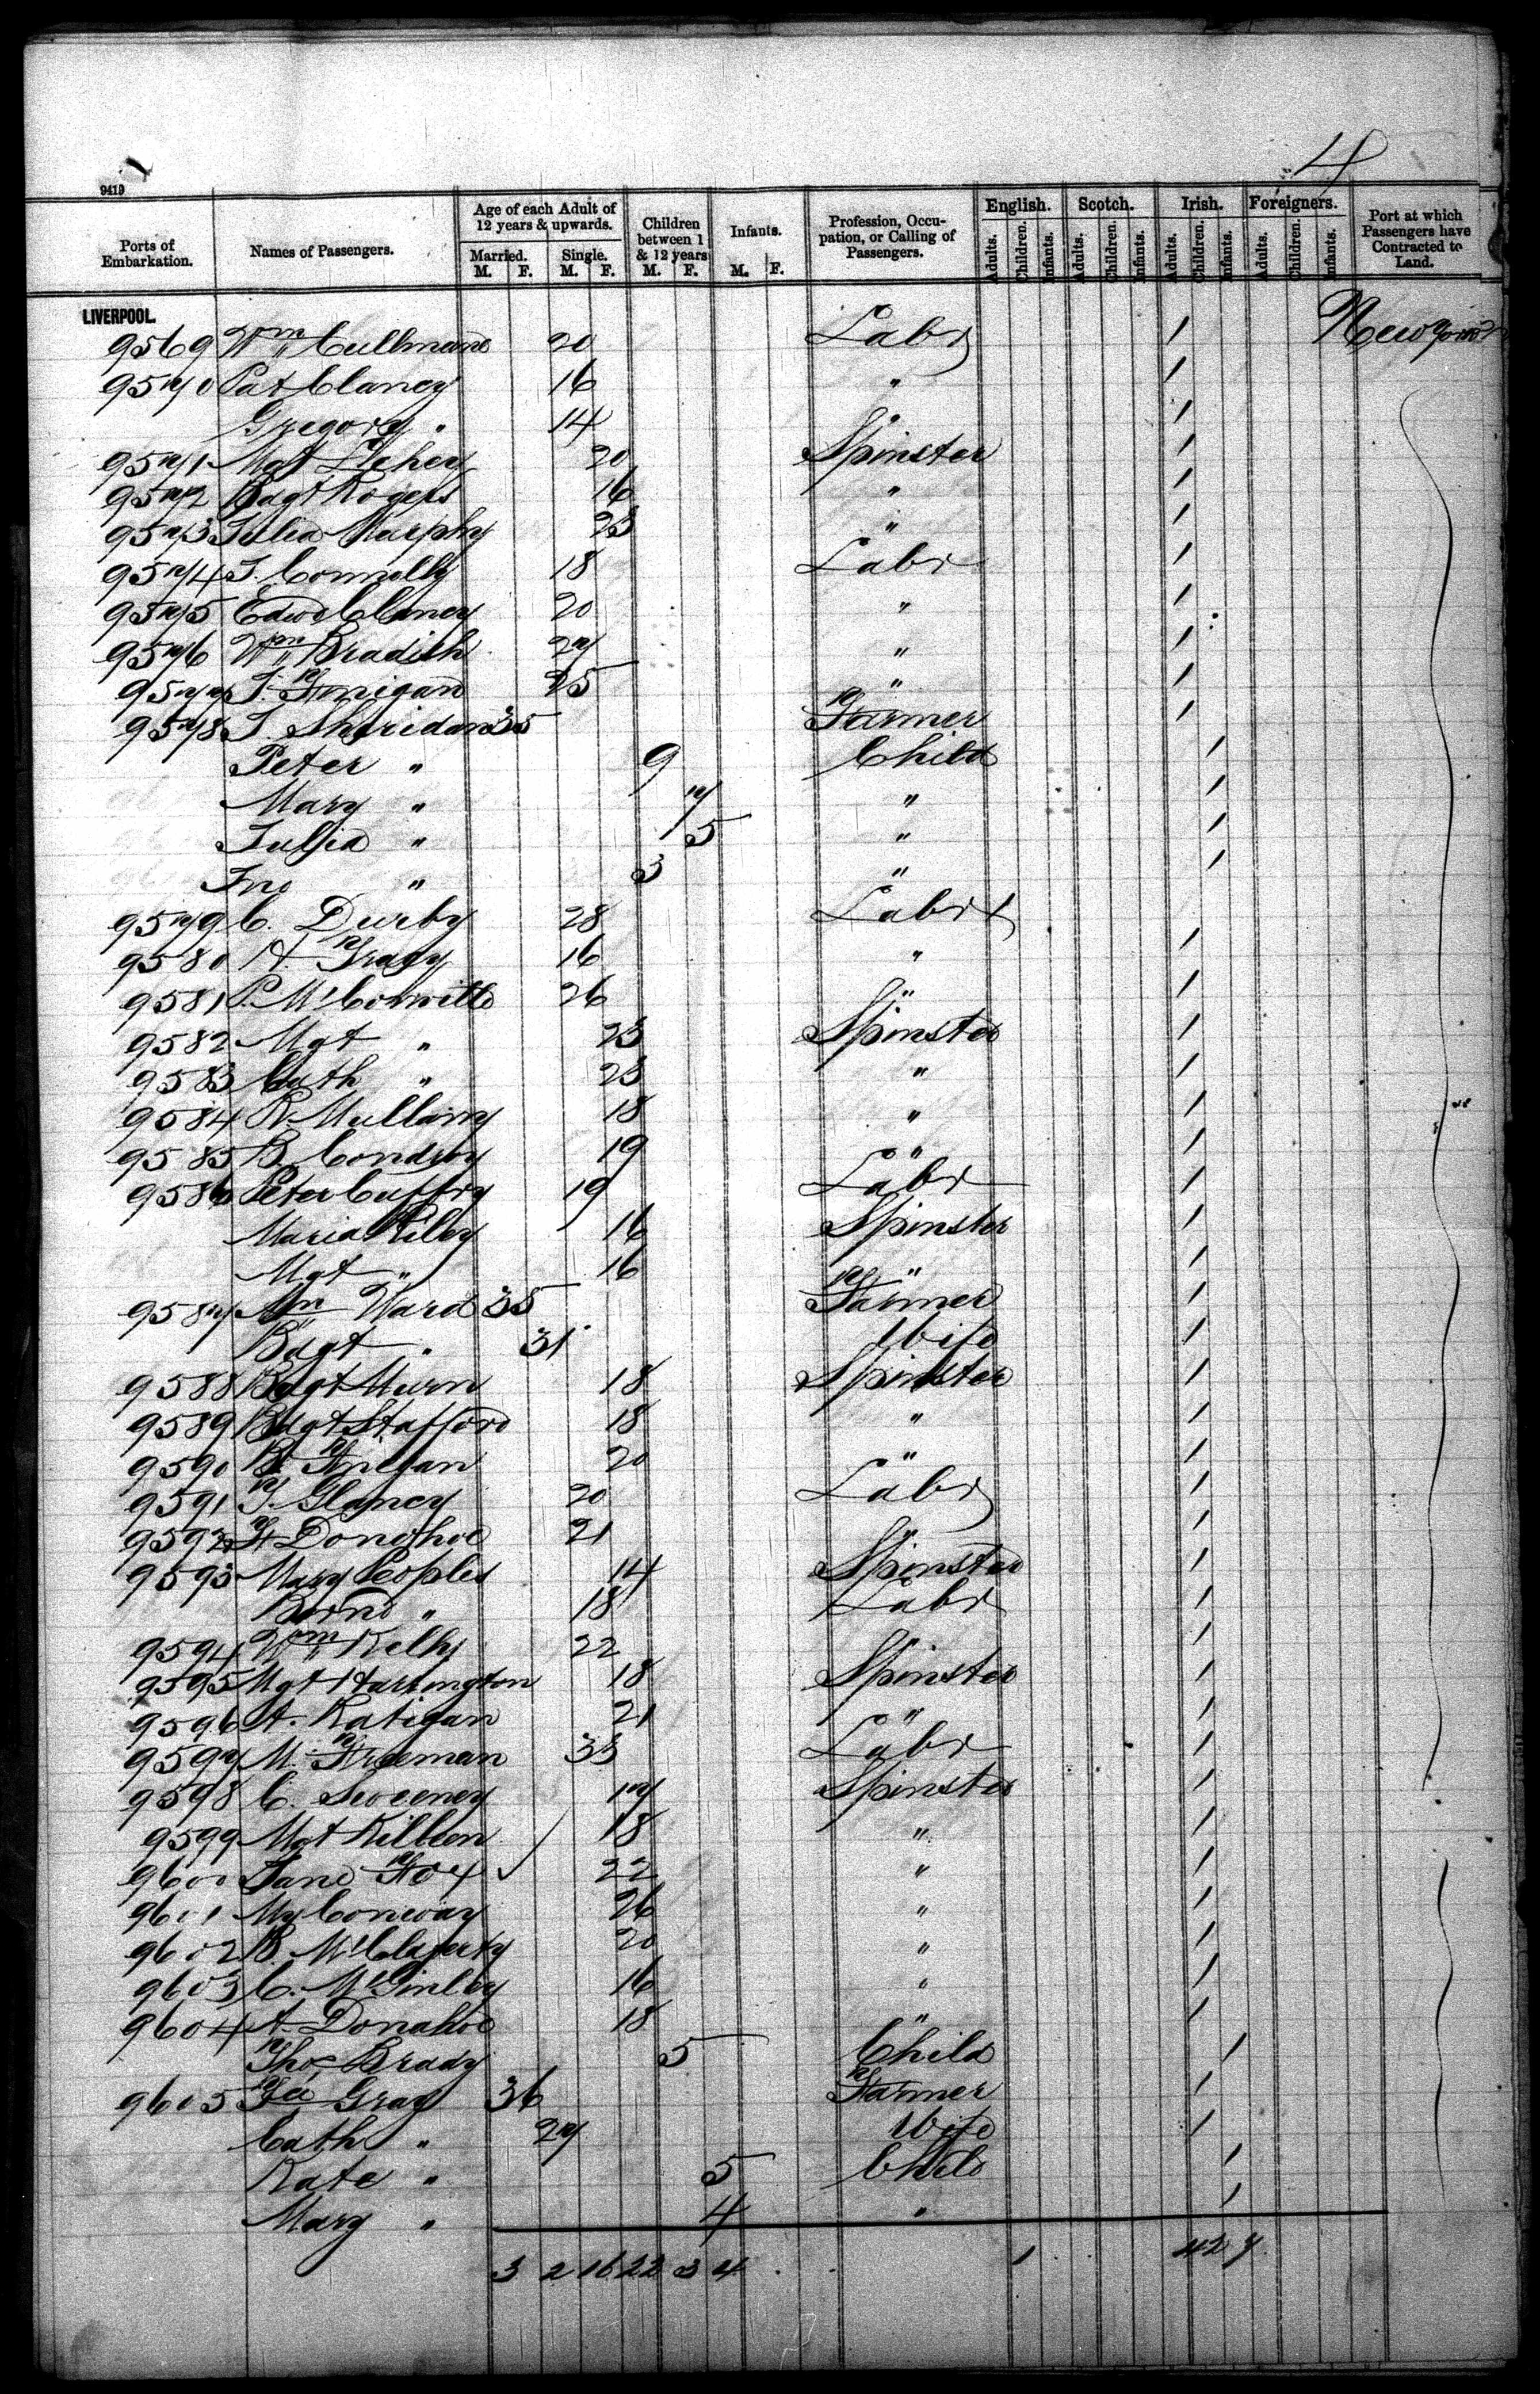 4
9419
Ports of Embarkation. Names of Passengers. Age of each Adult of 12 years & upwards. Married. M. F. Single. M. F. Children between 1 & 12 years M. F. Infants. M. F. Profession, Occupation, or Calling of Passengers. English. Adults. Children. Infants. Scotch. Adults. Children. Infants. Irish. Adults. Children. Infants. Foreigners. Adults. Children. Infants. Port at which Passengers have Contracted to Land.
LIVERPOOL.
9569 Wm Cullinane 20 Labr / New York
9570 Pat Clancy 16 " /
Gregory " 14 /
9571 Mgt 20 Spinster /
9572 Bdgt Rogers 16 " /
9573 Julia Murphy 23 " /
9574 J. Connolly 18 Labr /
9575 Edwd Clancy 20 " /
9576 Wm Bradish 27 " /
9577 J. Finigan 25 " /
9578 J. Sheridan 35 Farmer /
Peter " 9 Child /
Mary " 7 " /
Julia " 5 " /
Jno " 3 " /
9579 C. Durby 28 Labr
9580 A. Grady 16 " /
9581 P. McConville 26 " /
9582 Mgt " 23 Spinster /
9583 Cath " 23 " /
9584 R. Mullany 18 " /
9585 B. Condroy 19 " /
9586 Peter Cuffry 19 Labr /
Maria Riley 16 Spinster /
Mgt " 16 " /
9587 Wm Ward 35 Farmer /
Bdgt " 31 Wife /
9588 Bdgt Murn 18 Spinster /
9589 Bdgt Stafford 18 " /
9590 B. Finegan 20 " /
9591 T. Glancy 20 Labr /
9592 F Donohoe 21 " /
9593 Mary Peoples 14 Spinster /
Bernd " 18 Labr /
9594 Wm Kelly 22 /
9595 Mgt Harrington 18 Spinster /
9596 A. Ratigan 21 " /
9597 M. Freeman 33 Labr /
9598 C. Sweeney 17 Spinster /
9599 Mgt Killeen 18 " /
9600 Jane Fox 22 " /
9601 My Conway 26 " /
9602 B. McClaferty 20 " /
9603 C. McGinley 16 " /
9604 A. Donahoe 18 " /
Thos Brady 5 Child /
9605 Gray 36 Farmer /
Cath " 27 Wife /
Kate " 5 Child /
Mary " 4 " /
3 2 16 22 3 4 1 42 7